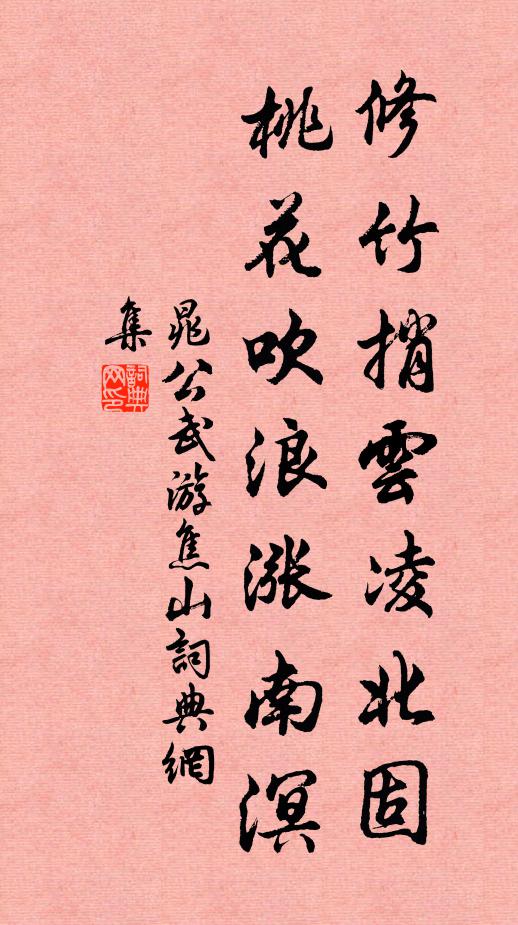 修竹捎雲凌北固
桃花吹浪漲南溟
晁公武游焦山詞典網
集
詞典網印